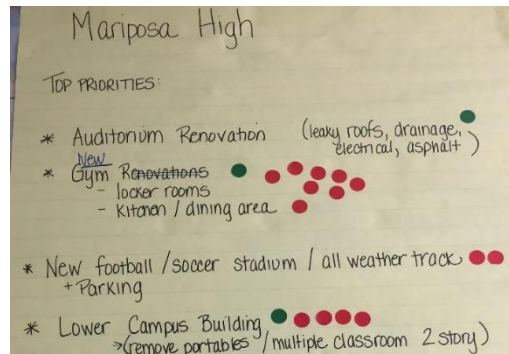 Mariposa High
TOP PRIORITIES:
* Auditorium Renovation (leaky roofs, drainage,
electrical, asphalt)
New
* Gym Renovations
- locker rooms
- kitchen / dining area
* New football / soccer stadium / all weather track
+ Parking
* Lower Campus Building
→ (remove portables / multiple classroom 2 story)